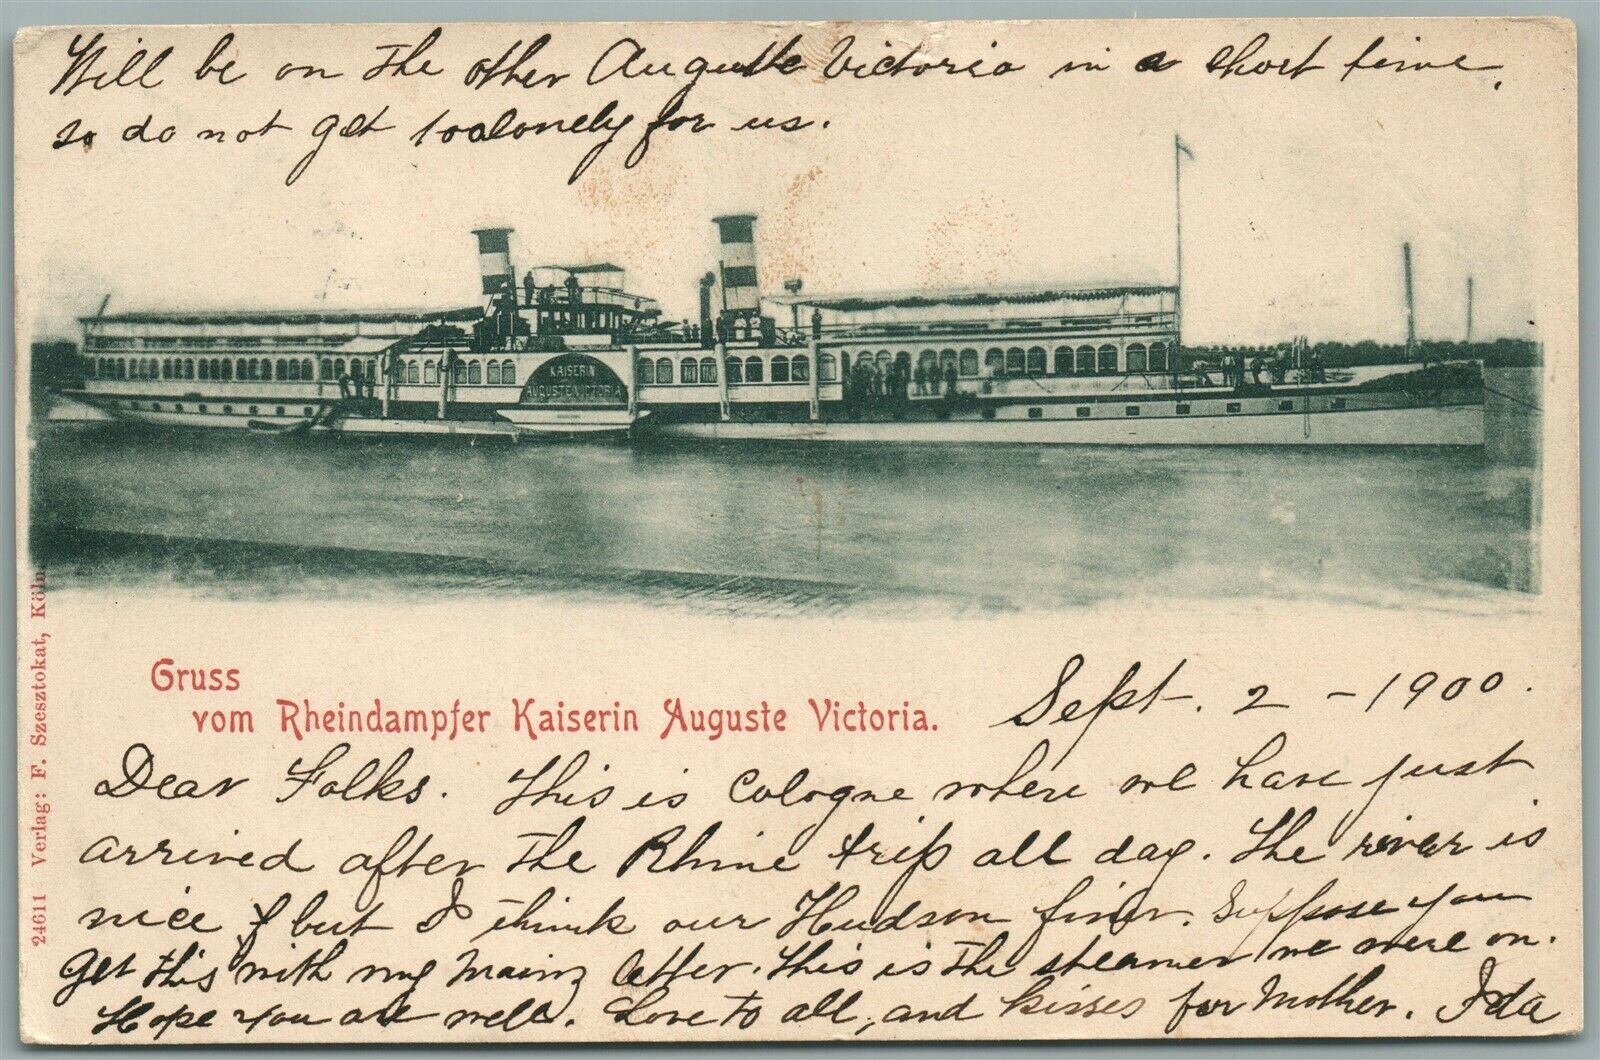 Will be on the other Auguste Victoria in a short time,
so do not get too lonely for us.
KAISERIN
AUGUSTE VICTORIA
Gruss
vom Rheindampfer Kaiserin Auguste Victoria.
Sept. 2 - 1900.
Dear Folks. This is Cologne where we have just
arrived after the Rhine trip all day. The river is
nice but I think our Hudson finer. Suppose you
get this with my Mainz letter. This is the steamer we were on.
Hope you are well. Love to all, and kisses for Mother. Ida
24611 Verlag: F. Szesztokat, Köln.